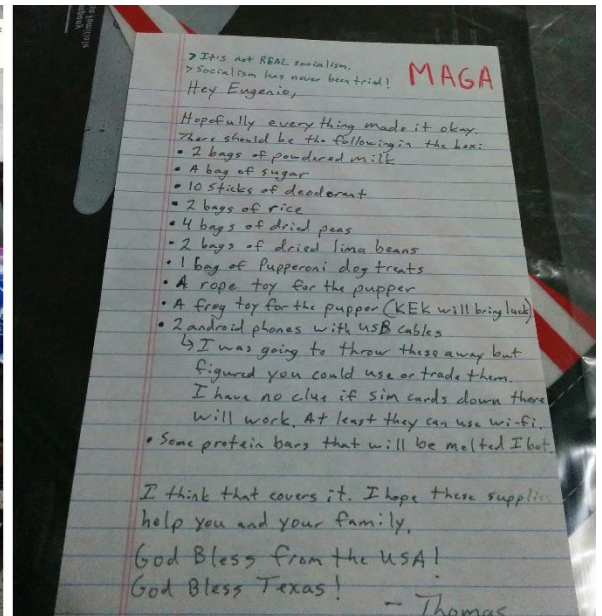 > It's not REAL socialism.
> Socialism has never been tried!
MAGA
Hey Eugenio,
Hopefully everything made it okay.
There should be the following in the box:
• 2 bags of powdered milk
• A bag of sugar
• 10 sticks of deodorant
• 2 bags of rice
• 4 bags of dried peas
• 2 bags of dried lima beans
• 1 bag of Pupperoni dog treats
• A rope toy for the pupper
• A frog toy for the pupper (KEK will bring luck)
• 2 android phones with USB cables
↳ I was going to throw these away but
figured you could use or trade them.
I have no clue if sim cards down there
will work. At least they can use wi-fi.
• Some protein bars that will be melted I bet.
I think that covers it. I hope these
help you and your family.
God Bless from the USA!
God Bless Texas!
- Thomas